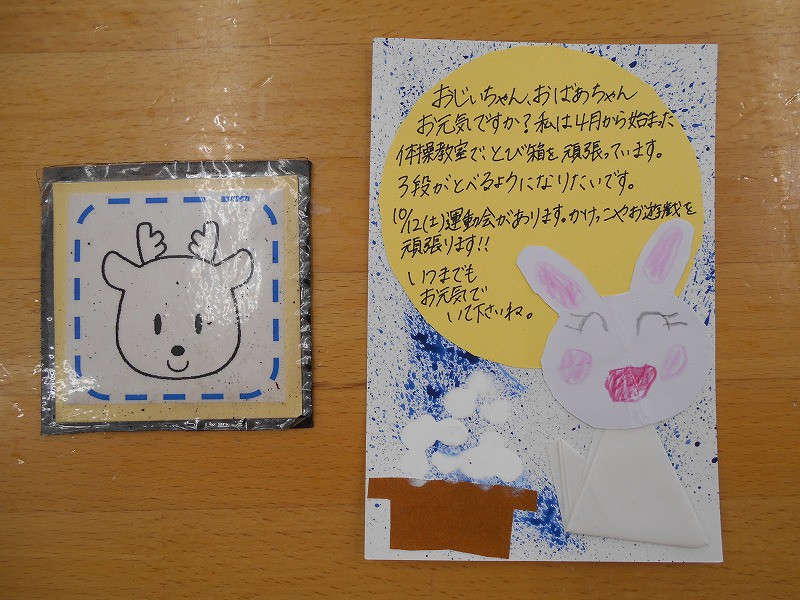 おじいちゃん、おばあちゃん
お元気ですか？私は４月から始まった
体操教室で、とび箱を頑張っています。
３段がとべるようになりたいです。
10/12(土)運動会があります。かけっこやお遊戯を
頑張ります!!
いつまでも
お元気で
いて下さいね。